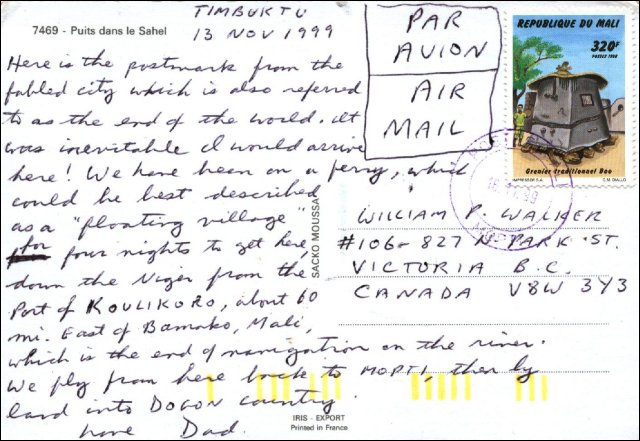 7469 - Puits dans le Sahel
TIMBUKTU
13 NOV 1999
Here is the postmark from the
fabled city which is also referred
to as the end of the world. It
was inevitable I would arrive
here! We have been on a ferry, which
could be best described
as a "floating village"
for four nights to get here,
down the Niger from the
Port of KOULIKORO, about 60
mi. East of Bamako, Mali,
which is the end of navigation on the river.
We fly from here back to MOPTI, then by
land into DOGON country.
Love Dad.
PAR
AVION
AIR
MAIL
REPUBLIQUE DU MALI
320F
POSTES 1998
Grenier traditionnel Boo
IMPRESSOR S.A.
C.M. DIALLO
SACKO MOUSSA
WILLIAM P. WALKER
#106-827 N. PARK ST.
VICTORIA B.C.
CANADA V8W 3Y3
IRIS - EXPORT
Printed in France